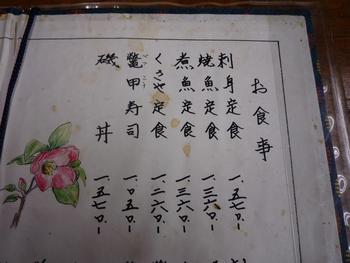 お食事
刺身定食 一、五七〇-
焼魚定食 一、三六〇-
煮魚定食 一、三六〇-
くさや定食 一、二六〇-
鼈甲寿司 一、〇五〇-
べっこう
磯丼 一、五七〇-